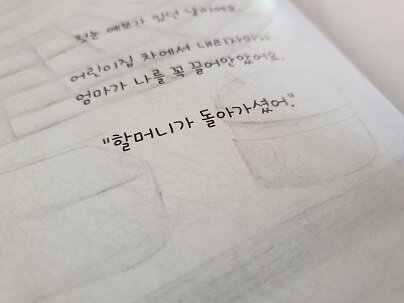 첫눈 예보가 있던 날이에요.
어린이집 차에서 내리자마자
엄마가 나를 꼭 끌어안았어요.
"할머니가 돌아가셨어."